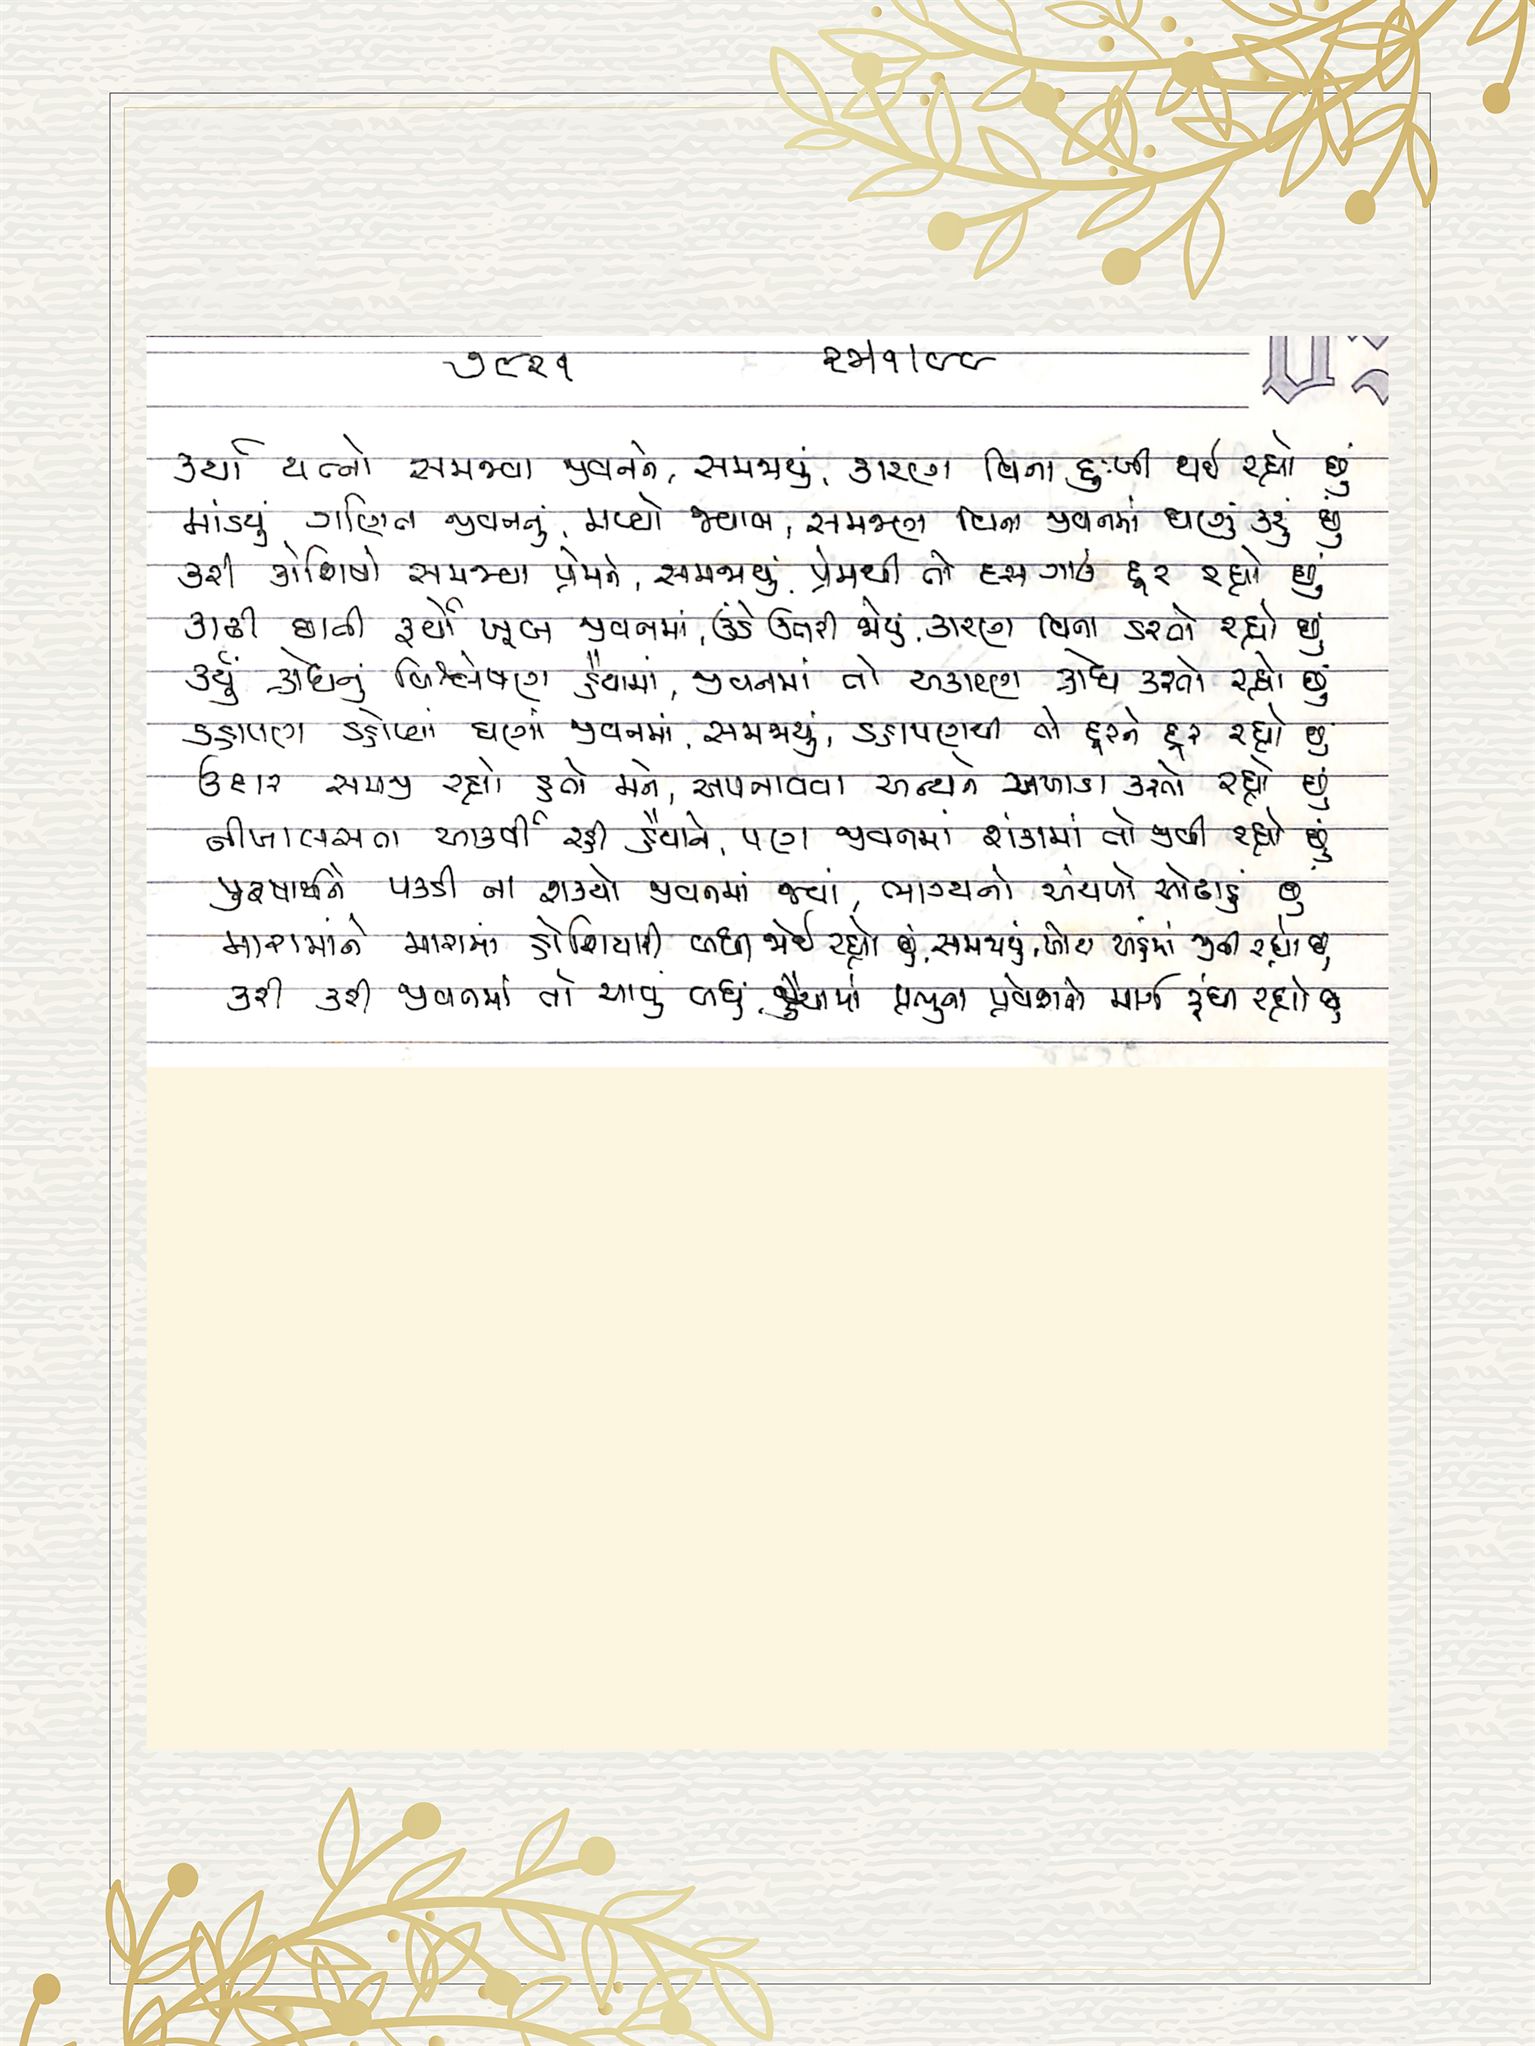 ૭૯૨૧ ૨૫|૧|૯૯
કર્યા યત્નો સમજવા જીવનને, સમજાયું, કારણ વિના દુઃખી થઈ રહ્યો છું
માંડયું ગણિત જીવનનું, મળ્યો જવાબ, સમજણ વિના જીવનમાં ઘણું કરું છું
કરી કોશિષો સમજવા પ્રેમને, સમજાયું, પ્રેમથી તો હસ ગાઉ દૂર રહ્યો છું
કાઢી છાતી ફર્યો ખૂબ જીવનમાં, ઊંડે ઊતરી જોયું, કારણ વિના ડરતો રહ્યો છું
કર્યું ક્રોધનું વિશ્લેષણ હૈયામાં, જીવનમાં તો અકારણ ક્રોધ કરતો રહ્યો છું
ડહાપણ ડહોળ્યાં ઘણાં જીવનમાં, સમજાયું, ડહાપણથી તો દૂરને દૂર રહ્યો છું
ઉદાર સમજી રહ્યો હતો મને, અપનાવવા અન્યને અખાડા કરતો રહ્યો છું
નીખાલસતા આકર્ષી રહી હૈયાને, પણ જીવનમાં શંકામાં તો જીવી રહ્યો છું
પુરુષાર્થને પકડી ના શક્યો જીવનમાં જ્યાં, ભાગ્યનો અંચળો ઓઢાડું છું
મારામાંને મારામાં હોશિયારી બધી જોઈ રહ્યો છું, સમજાયું, ખોટા અહંમાં જીવી રહ્યો છું
કરી કરી જીવનમાં તો આવું બધું, હૈયામાં પ્રભુના પ્રવેશનો માર્ગ રૂંધી રહ્યો છું